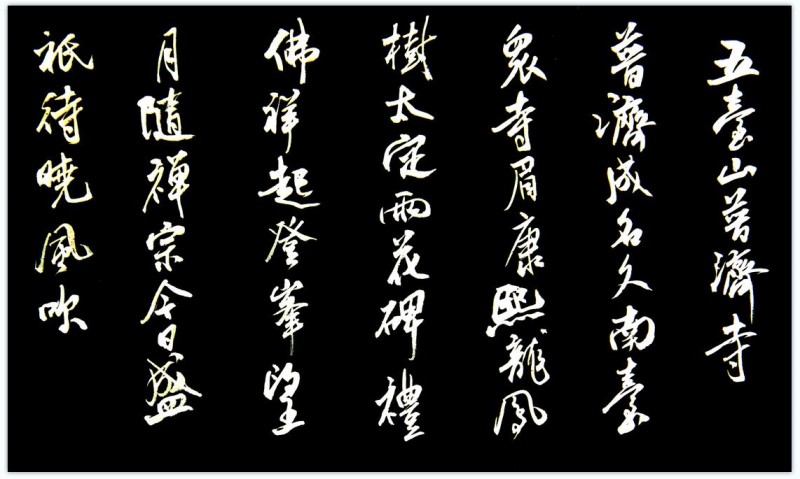 五臺山普濟寺
普濟成名久南臺
眾寺眉康熙龍鳳
樹太定雨花碑禮
佛祥起登峯望
月隨禅宗今日盛
祇待曉風吹